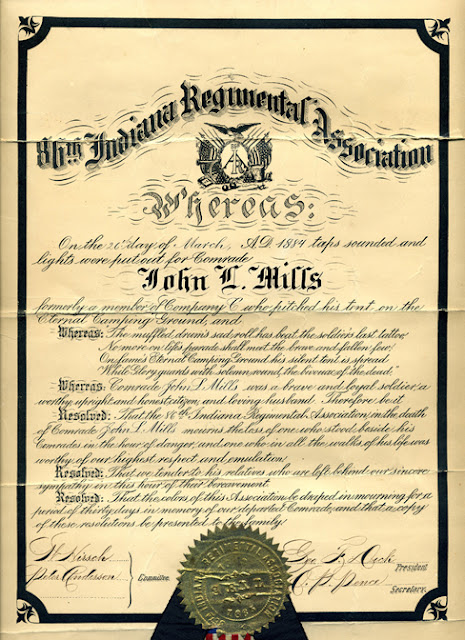 86th Indiana Regimental Association
Whereas:
On the 26th day of March, A.D. 1884 taps sounded and
lights were put out for Comrade
John L. Mills
formerly a member of Company C who pitched his tent on the
Eternal Camping Ground, and
Whereas: The muffled drum's sad roll has beat the soldier's last tattoo;
No more on life's parade shall meet the brave and fallen few,
On fame's Eternal Camping Ground his silent tent is spread
While Glory guards with solemn round, the bivouac of the dead.
Whereas: Comrade John L. Mills, was a brave and loyal soldier, a
worthy upright and honest citizen, and loving husband. Therefore be it
Resolved: That the 86th Indiana Regimental Association, in the death
of Comrade John L. Mills mourns the loss of one who stood beside his
Comrades in the hour of danger, and one who in all the walks of his life was
worthy of our highest respect and emulation.
Resolved: That we tender to his relatives who are left behind our sincere
sympathy in this hour of their bereavement.
Resolved: That the colors of this Association be draped in mourning for a
period of thirty days in memory of our departed Comrade, and that a copy
of these resolutions be presented to the family.
Hirsch
Peter Anderson
Committee.
Geo. F.
President
C. P. Pence
Secretary.